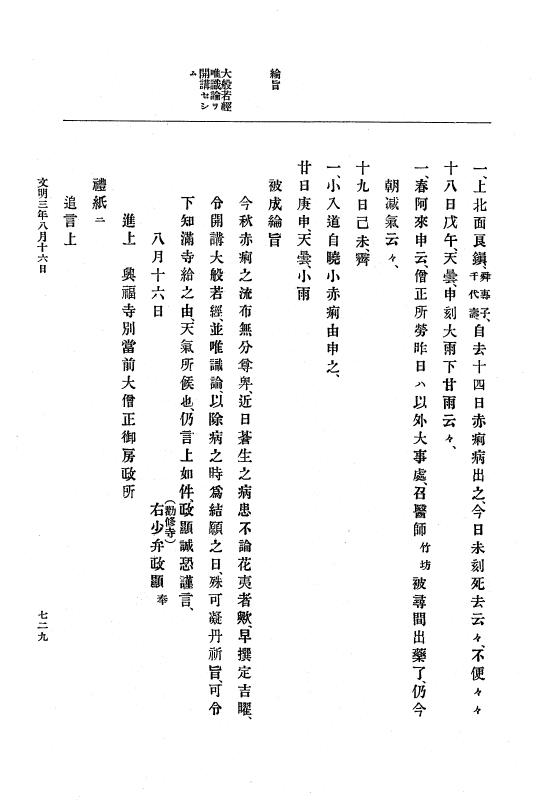 綸旨
大般若經
唯識論ヲ
開講セシ
ム
一、上北面良鎭、舜專子、千代壽、自去十四日赤痢病出之、今日未刻死去云々、不便々々
十八日戊午、天曇、申刻大雨下、甘雨云々、
一、春阿來申云、僧正所勞昨日ハ以外大事處、召醫師竹坊被尋間出藥了、仍今
朝减氣云々、
十九日己未、霽
一、小入道自曉小赤痢由申之、
廿日庚申、天曇、小雨
被成綸旨
今秋赤痢之流布無分尊卑、近日蒼生之病患不論花夷者歟、早撰定吉曜、
令開講大般若經、並唯識論、以除病之時爲結願之日、殊可凝丹祈旨、可令
下知滿寺給之由、天氣所候也、仍言上如件、政顯誠恐謹言、
八月十六日
(勸修寺)
右少弁政顯奉
進上 興福寺別當前大僧正御房政所
禮紙ニ
追言上
文明三年八月十六日
七二九